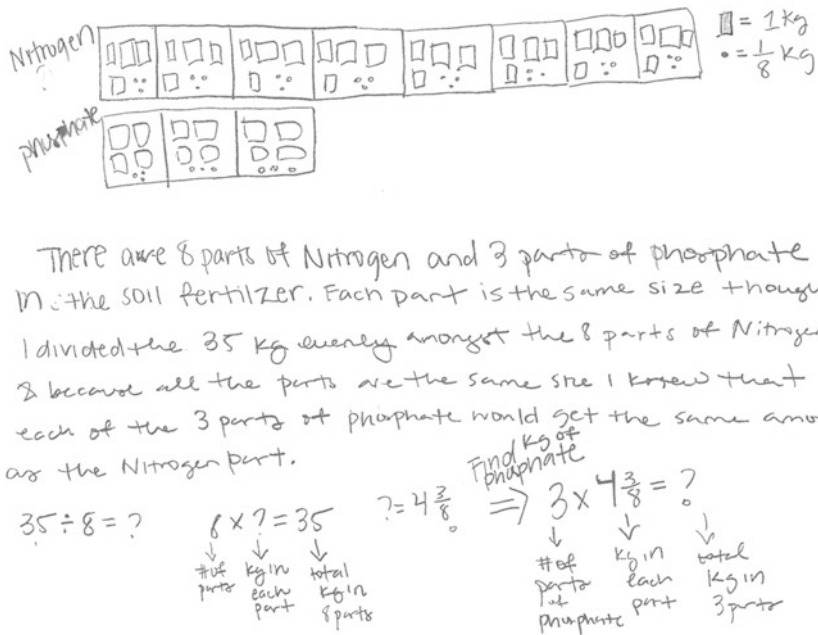 Nitrogen
?
= 1 kg
• = 1/8 kg
phosphate
There are 8 parts of Nitrogen and 3 parts of phosphate
in the soil fertilzer. Each part is the same size though
I divided the 35 kg evenly amongst the 8 parts of Nitrogen
& because all the parts are the same size I knew that
each of the 3 parts of phosphate would get the same amo
as the Nitrogen part.
Find kg of
phaphate
35 ÷ 8 = ?
8 × ? = 35
? = 4 3/8
⇒ 3 × 4 3/8 = ?
# of parts
kg in each part
total kg in 8 parts
# of parts of phosphate
kg in each part
total kg in 3 parts